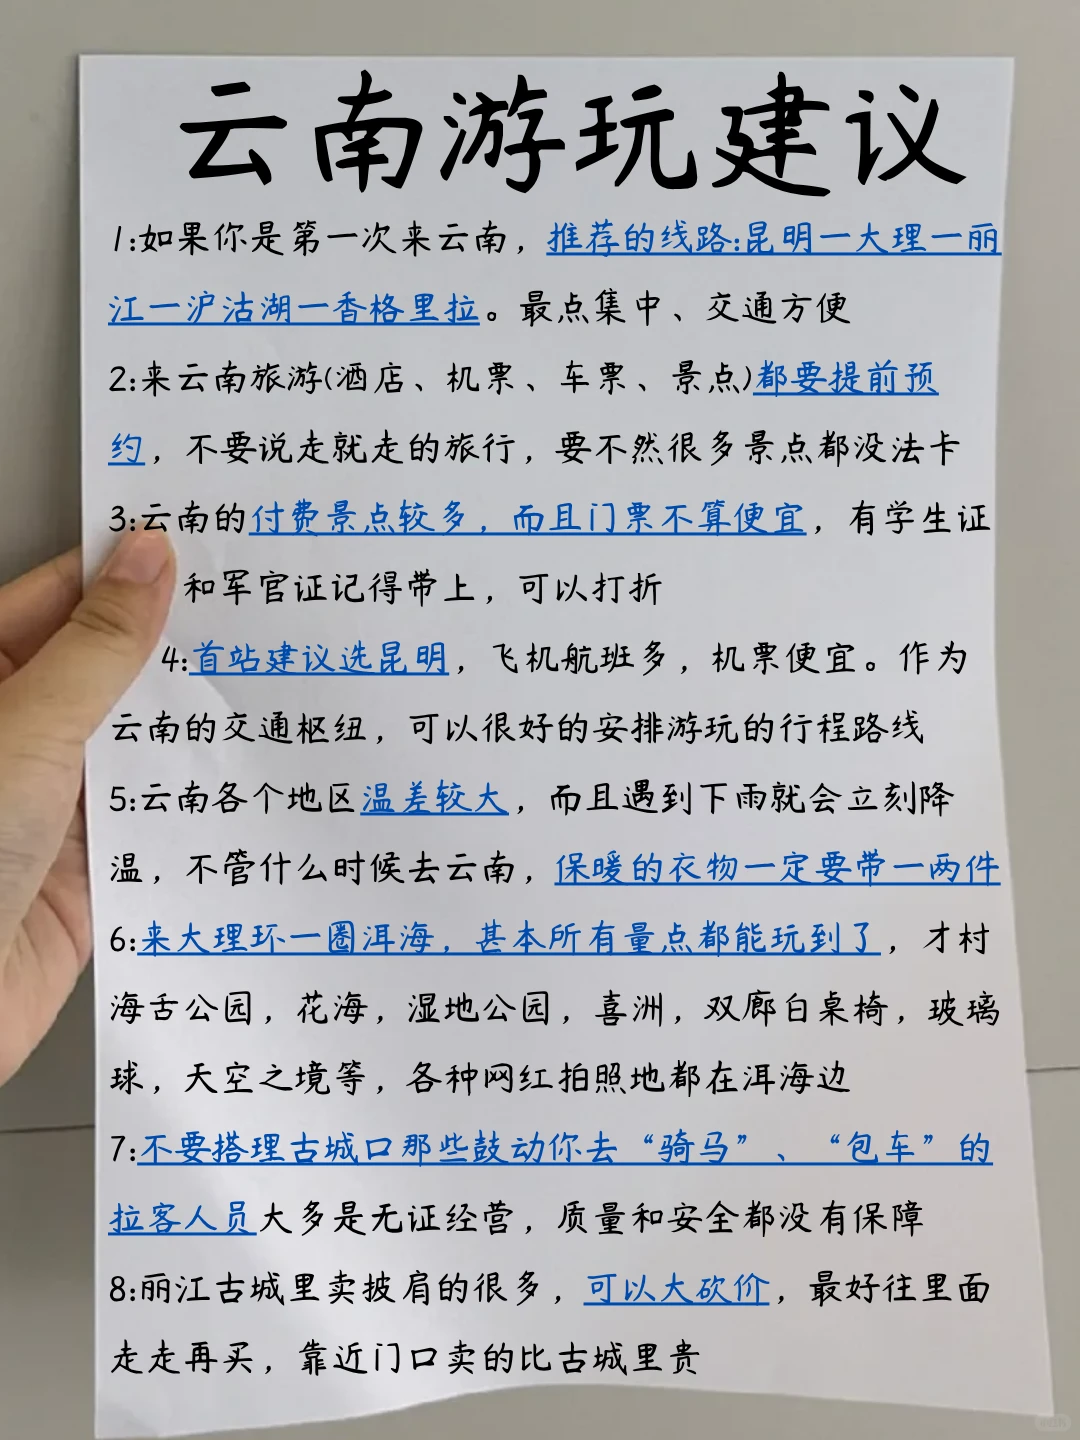 云南游玩建议
1:如果你是第一次来云南，推荐的线路:昆明一大理一丽
江一沪沽湖一香格里拉。最点集中、交通方便
2:来云南旅游(酒店、机票、车票、景点)都要提前预
约，不要说走就走的旅行，要不然很多景点都没法卡
3:云南的付费景点较多，而且门票不算便宜，有学生证
和军官证记得带上，可以打折
4:首站建议选昆明，飞机航班多，机票便宜。作为
云南的交通枢纽，可以很好的安排游玩的行程路线
5:云南各个地区温差较大，而且遇到下雨就会立刻降
温，不管什么时候去云南，保暖的衣物一定要带一两件
6:来大理环一圈洱海，甚本所有量点都能玩到了，才村
海舌公园，花海，湿地公园，喜洲，双廊白桌椅，玻璃
球，天空之境等，各种网红拍照地都在洱海边
7:不要搭理古城口那些鼓动你去“骑马”、“包车”的
拉客人员大多是无证经营，质量和安全都没有保障
8:丽江古城里卖披肩的很多，可以大砍价，最好往里面
走走再买，靠近门口卖的比古城里贵